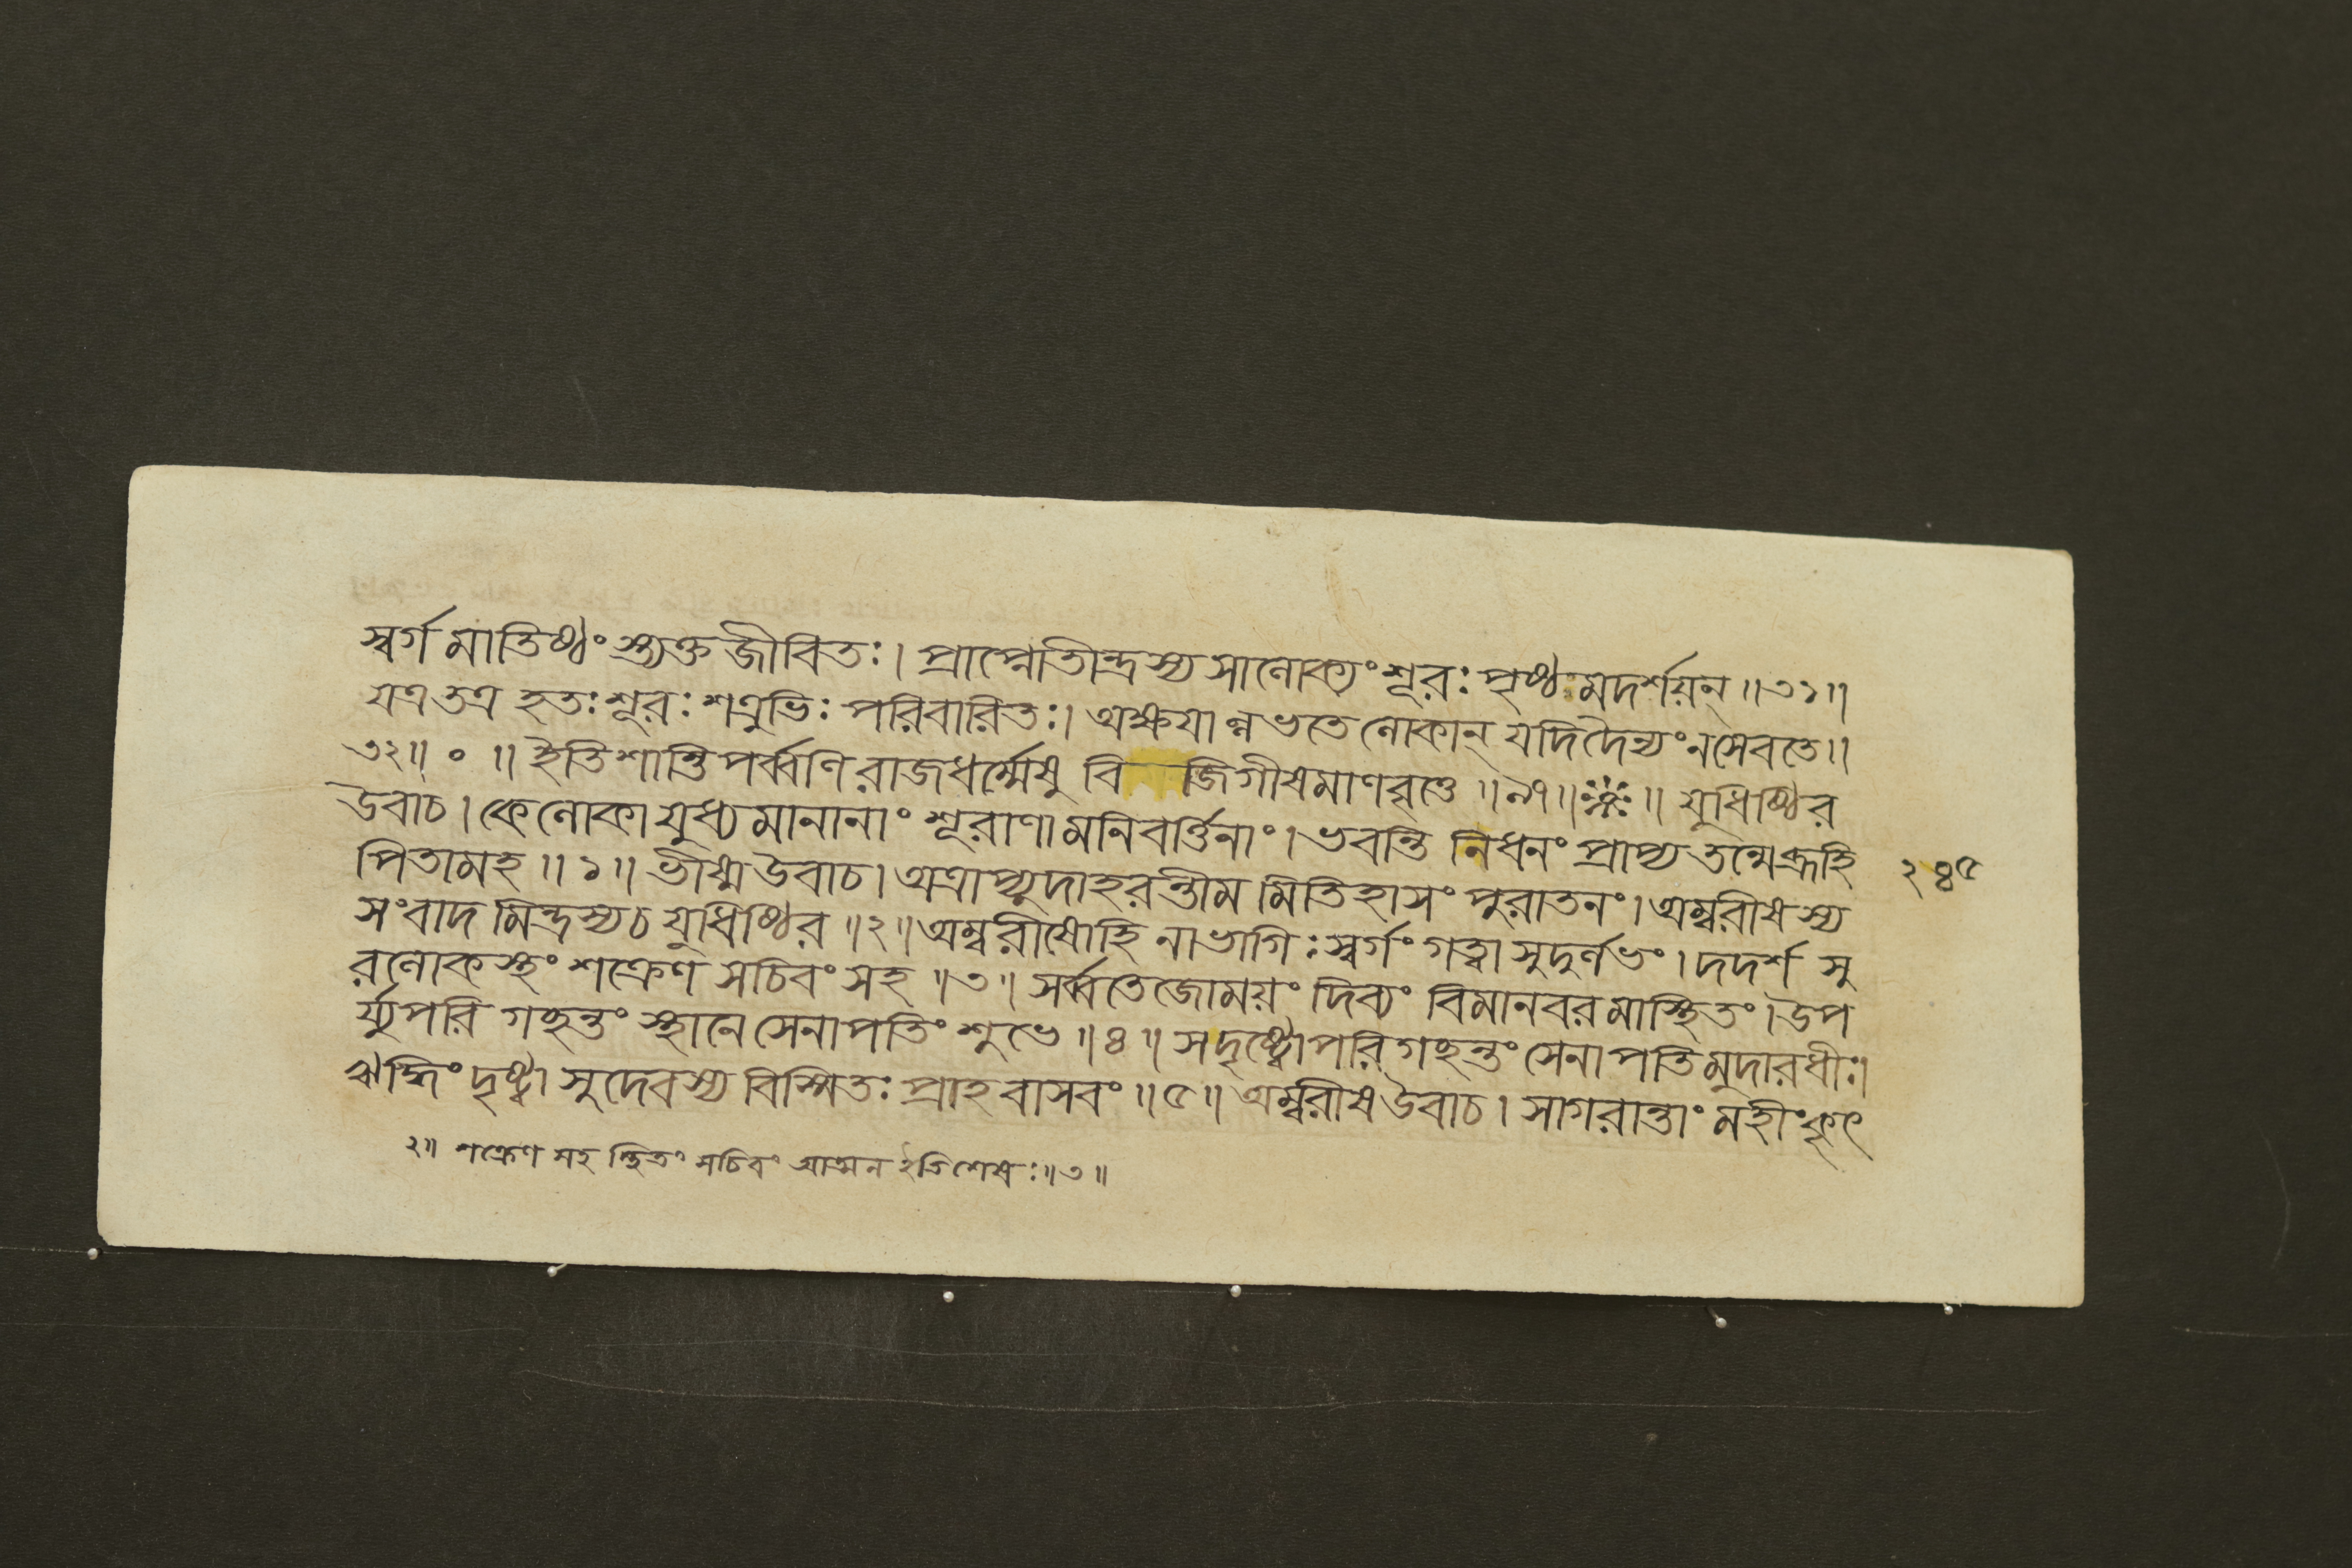 স্বর্গমাতিষ্ঠংস্ত্যক্তজীবিতঃ। প্রাপ্নোতীন্দ্রস্য সালোক্যং শূরঃ পৃষ্ঠমদর্শয়ন্॥৩১॥
যত্র তত্র হতঃ শূরঃ শত্রুভিঃ পরিবারিতঃ। অক্ষয়াল্লভতে লোকান্ যদি দৈন্যং ন সেবতে॥
৩২॥ ০ ॥ ইতি শান্তিপর্ব্বণি রাজধর্ম্মেষু বি জিগীষমাণবৃত্তে ॥৯৭॥ ॥ যুধিষ্ঠির
উবাচ। কে লোকা যুধ্যমানানাং শূরাণামনিবর্ত্তিনাং। ভবন্তি নিধনং প্রাপ্য তন্মে ব্রূহি
পিতামহ ॥১॥ ভীষ্ম উবাচ। অত্রাপ্যুদাহরন্তীমমিতিহাসং পুরাতনং। অম্বরীষস্য
সংবাদমিন্দ্রস্য চ যুধিষ্ঠির ॥২॥ অম্বরীষো হি নাভাগিঃ স্বর্গং গত্বা সুদুর্লভং। দদর্শ সু
রলোকস্থং শক্রেণ সচিবং সহ ॥৩॥ সর্ব্বতেজোময়ং দিব্যং বিমানবরমাস্থিতং। উপ
র্য্যুপরি গচ্ছন্তং স্থানে সেনাপতিং শুভে ॥৪॥ স দৃষ্ট্বোপরি গচ্ছন্তং সেনাপতিমুদারধীঃ।
ঋদ্ধিং দৃষ্ট্বা সুদেবস্য বিস্মিতঃ প্রাহ বাসবং ॥৫॥ অম্বরীষ উবাচ। সাগরান্তাং মহীং কৃৎ
২৪৫
২॥ শক্রেণ সহ স্থিতং সচিবং আত্মন ইতি শেষঃ॥৩॥